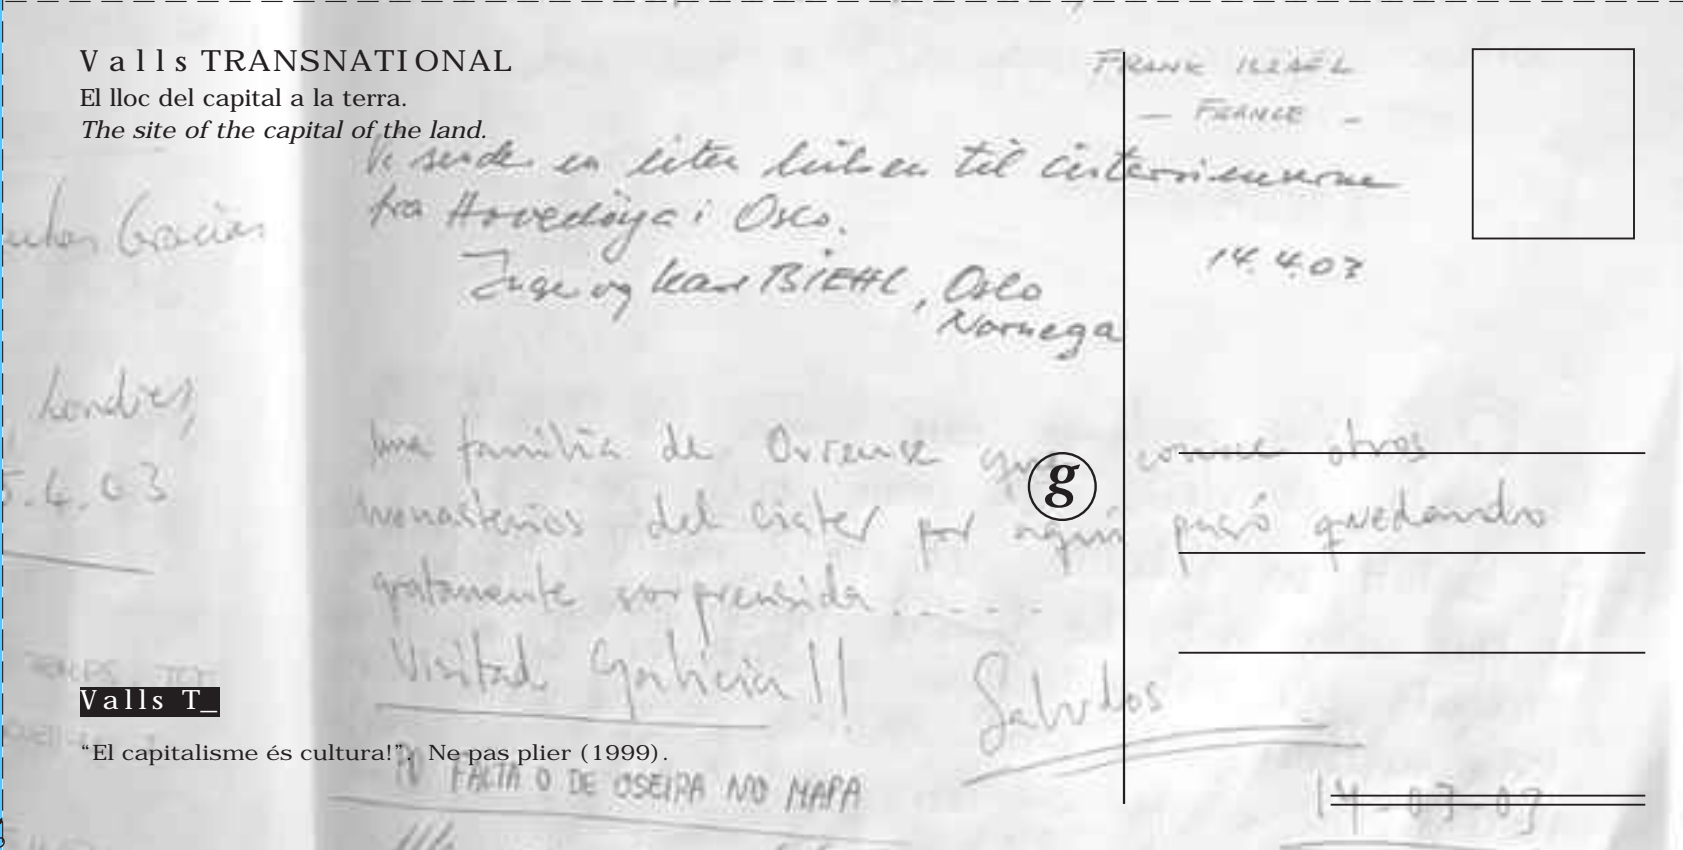 Valls TRANSNATIONAL
El lloc del capital a la terra.
The site of the capital of the land.
FRANK
— FRANCE –
Vi sender en liten hilsen til cisterciensern
fra Hovedöya i Oslo.
og BIEHL, Oslo
Noruega
14.4.03
Gracias
Londres,
5.4.03
Una familia de Ourense que conoce otros
monasterios del cister por aquí pasó quedando
gratamente sorprendida......
Visitad Galicia!!
Saludos
g
Valls T_
“El capitalisme és cultura!”. Ne pas plier (1999).
FALTA O DE OSEIRA NO MAPA
14-03-03